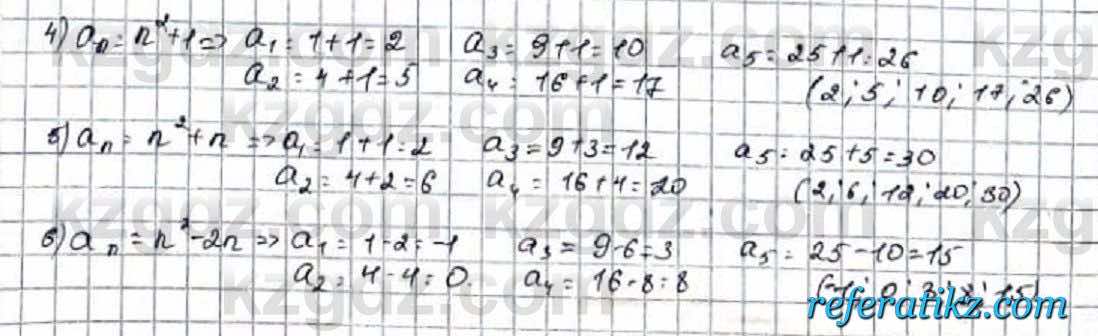 4) aₙ = n²+1 => a₁ = 1+1=2 a₃ = 9+1=10 a₅ = 25+1=26
a₂ = 4+1=5 a₄ = 16+1=17 (2; 5; 10; 17; 26)
5) aₙ = n²+n => a₁ = 1+1=2 a₃ = 9+3=12 a₅ = 25+5=30
a₂ = 4+2=6 a₄ = 16+4=20 (2; 6; 12; 20; 30)
6) aₙ = n²-2n => a₁ = 1-2=-1 a₃ = 9-6=3 a₅ = 25-10=15
a₂ = 4-4=0. a₄ = 16-8=8 (-1; 0; 3; 8; 15)
referatikz.com